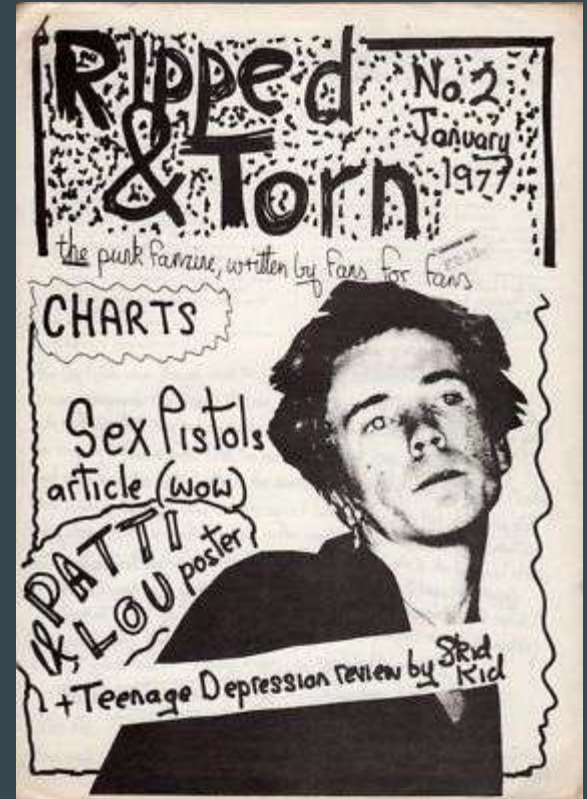 Ripped
& Torn
No. 2
January
1977
the punk fanzine, written by fans for fans
CHARTS
Sex Pistols
article (wow)
PATTI
& LOU poster
+ Teenage Depression review by Skid
Kid